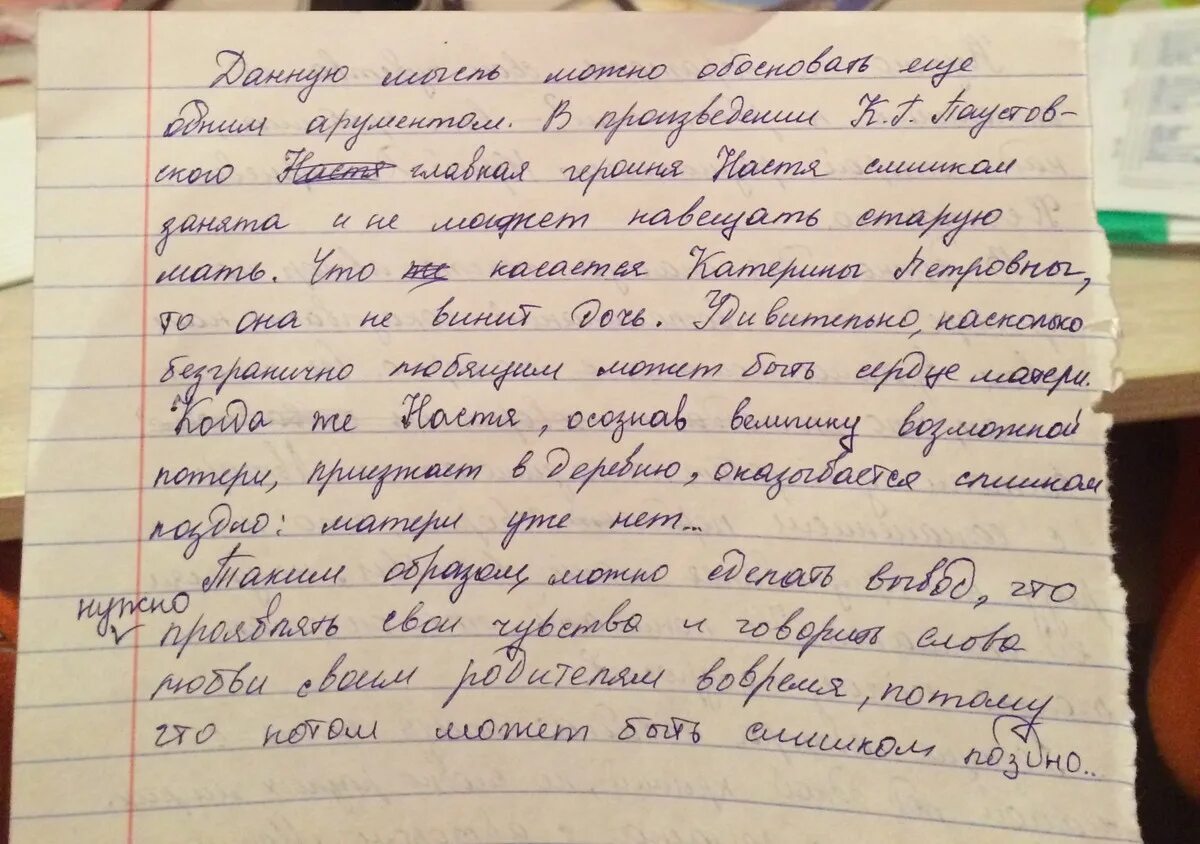 Данную мысль можно обосновать еще
одним арументом. В произведении К.Г. Паустов-
ского Настя главная героиня Настя слишком
занята и не может навещать старую
мать. Что же касается Катерины Петровны,
то она не винит дочь. Удивительно, насколько
безгранично любящим может быть сердце матери.
Когда же Настя, осознав величину возможной
потери, приезжает в деревню, оказывается слишком
поздно: матери уже нет...
Таким образом, можно сделать вывод, что
нужно
проявлять свои чувства и говорить слова
любви своим родителям вовремя, потому
что потом может быть слишком поздно..